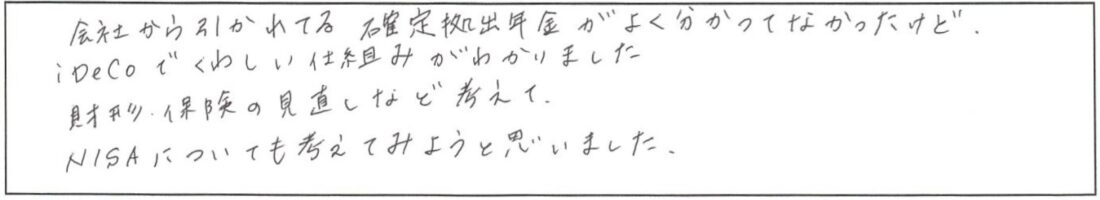 会社から引かれてる 確定拠出年金がよく分かってなかったけど、
iDeCoでくわしい仕組みがわかりました
財形・保険の見直しなど考えて、
NISAについても考えてみようと思いました。